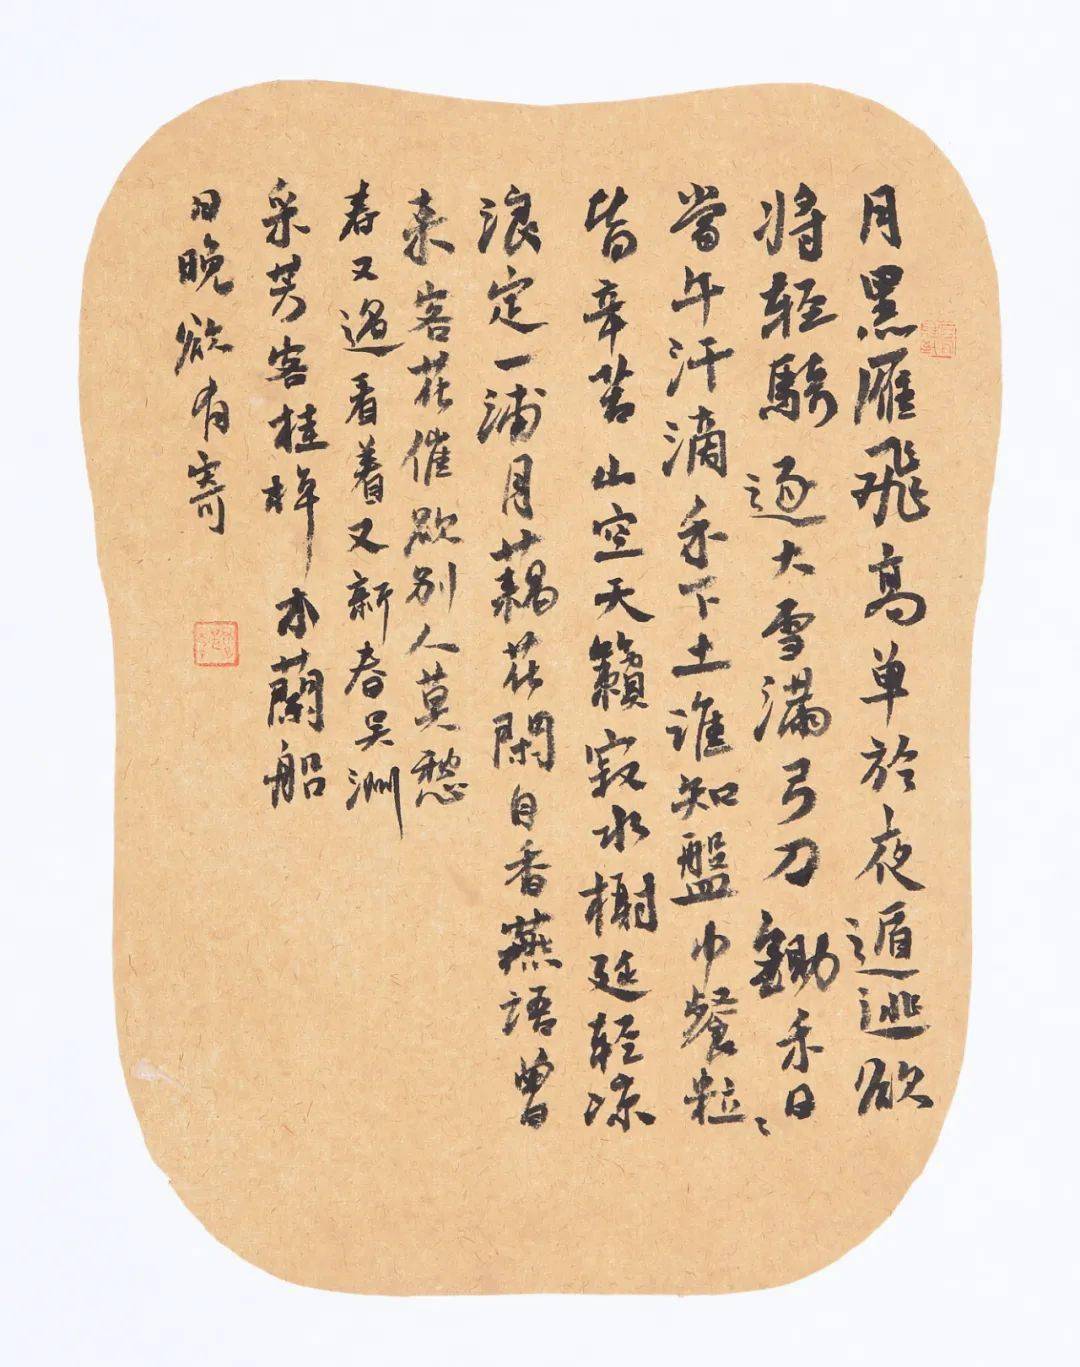 月黑雁飛高单於夜遁逃欲
将轻騎逐大雪滿弓刀鋤禾日
當午汗滴禾下土谁知盤中餐粒〻
皆辛苦山空天籟寂水榭延轻凉
浪定一浦月藕花閑自香燕語曾
来客花催欲别人莫愁
春又過看着又新春吴洲
采芳客桂棹木蘭船
日晚欲有寄